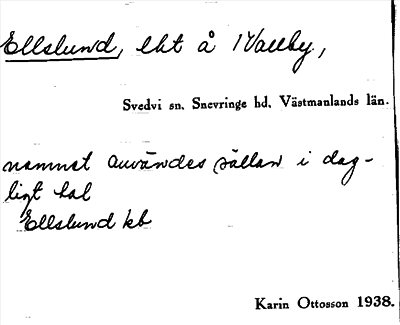 Ellslund, lht å Valby,
Svedvi sn. Snevringe hd. Västmanlands län.
namnet användes sällan i dag-
ligt tal
Ellslund kb
Karin Ottosson 1938.